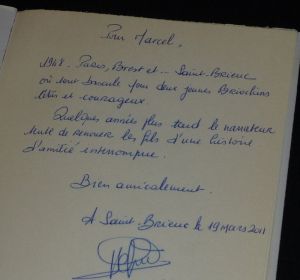 Pour Marcel,
1968 - Paris, Brest et ... Saint-Brieuc
où tout bascule pour deux jeunes Briochins
têtus et courageux.
Quelques années plus tard le narrateur
tente de renouer les fils d'une histoire
d'amitié interrompue.
Bien amicalement.
A Saint Brieuc le 19 mars 2011